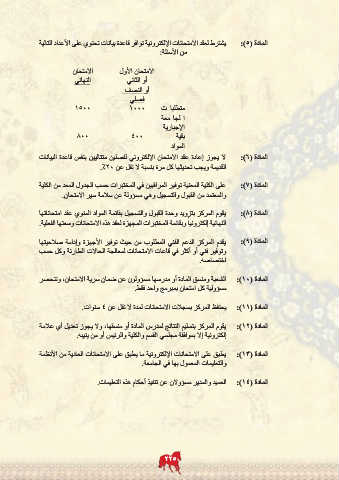 المادة (٥): يشترط لعقد الامتحانات الإلكترونية توافر قاعدة بيانات تحتوي على الأعداد التالية
من الأسئلة:
الامتحان الأول الامتحان
أو الثاني النهائي
أو النصف
فصلي
متطلبات ١٠٠٠ ١٥٠٠
الجامعة
الإجبارية
بقية ٤٠٠ ٨٠٠
المواد
المادة (٦): لا يجوز إعادة عقد الامتحان الإلكتروني لفصلين متتاليين بنفس قاعدة البيانات
القديمة ويجب تحديثها كل مرة بنسبة لا تقل عن ٢٠٪.
المادة (٧): على الكلية المعنية توفير المراقبين في المختبرات حسب الجدول المعد من الكلية
والمعتمد من القبول والتسجيل وهي مسؤولة عن سلامة سير الامتحان.
المادة (٨): يقوم المركز بتزويد وحدة القبول والتسجيل بقائمة المواد المنوي عقد امتحاناتها
النهائية إلكترونيا وبقائمة المختبرات المجهزة لعقد هذه الامتحانات وسعتها الفعلية.
المادة (٩): يقدم المركز الدعم الفني المطلوب من حيث توفير الأجهزة وإدامة صلاحيتها
وتوفير فني أو أكثر في قاعات الامتحانات لمعالجة الحالات الطارئة وكل حسب
اختصاصه.
المادة (١٠): الشعبة ومنسق المادة أو مدرسها مسؤولون عن ضمان سرية الامتحان، وتنحصر
مسؤولية كل امتحان بمبرمج واحد فقط.
المادة (١١): يحتفظ المركز بسجلات الامتحانات لمدة لا تقل عن ٤ سنوات.
المادة (١٢): يقوم المركز بتسليم النتائج لمدرس المادة أو منسقها، ولا يجوز تعديل أي علامة
إلكترونية إلا بموافقة مجلسي القسم والكلية والرئيس أو من ينيبه.
المادة (١٣): يطبق على الامتحانات الإلكترونية ما يطبق على الامتحانات العادية من الأنظمة
والتعليمات المعمول بها في الجامعة.
المادة (١٤): العميد والمدير مسؤولان عن تنفيذ أحكام هذه التعليمات.
٢٢٥